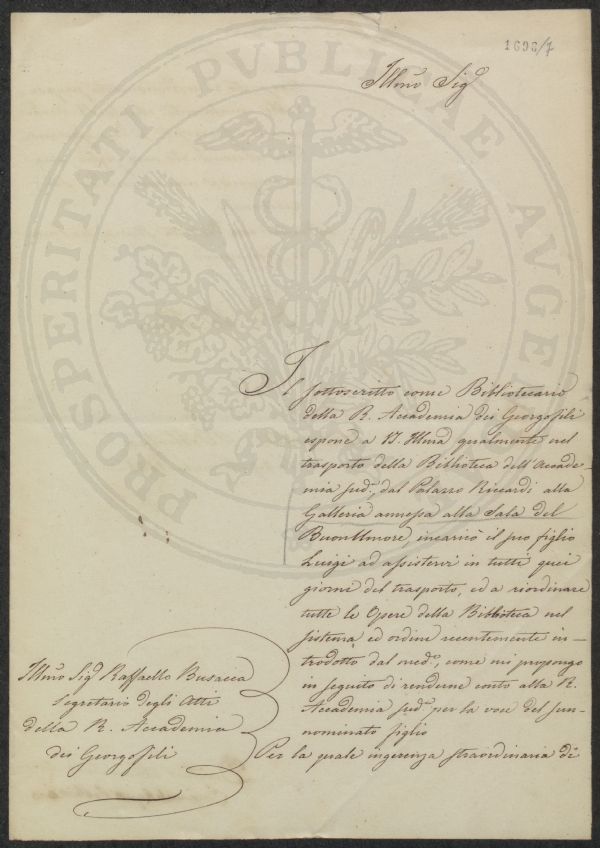 1696/7
Illmo Sigr
Il sottoscritto come Bibliotecario
della R. Accademia dei Georgofili
espone a V. Illma qualmente nel
trasporto della Biblioteca dell'Accade-
mia sudta, dal Palazzo Riccardi alla
Galleria annessa alla Sala del
Buonumore, incaricò il suo figlio
Luigi ad assistervi in tutti quei
giorni del trasporto, ed a riordinare
tutte le Opere della Biblioteca nel
sistema ed ordine recentemente in-
trodotto dal medo, come mi propongo
in seguito di renderne conto alla R.
Accademia sudta per la voce del sun-
nominato figlio
Per la quale ingerenza straordinaria di
Illmo Sigr Raffaello Busacca
Segretario degli Atti
della R. Accademia
dei Georgofili
PROSPERITATI PVBLICAE AVGE